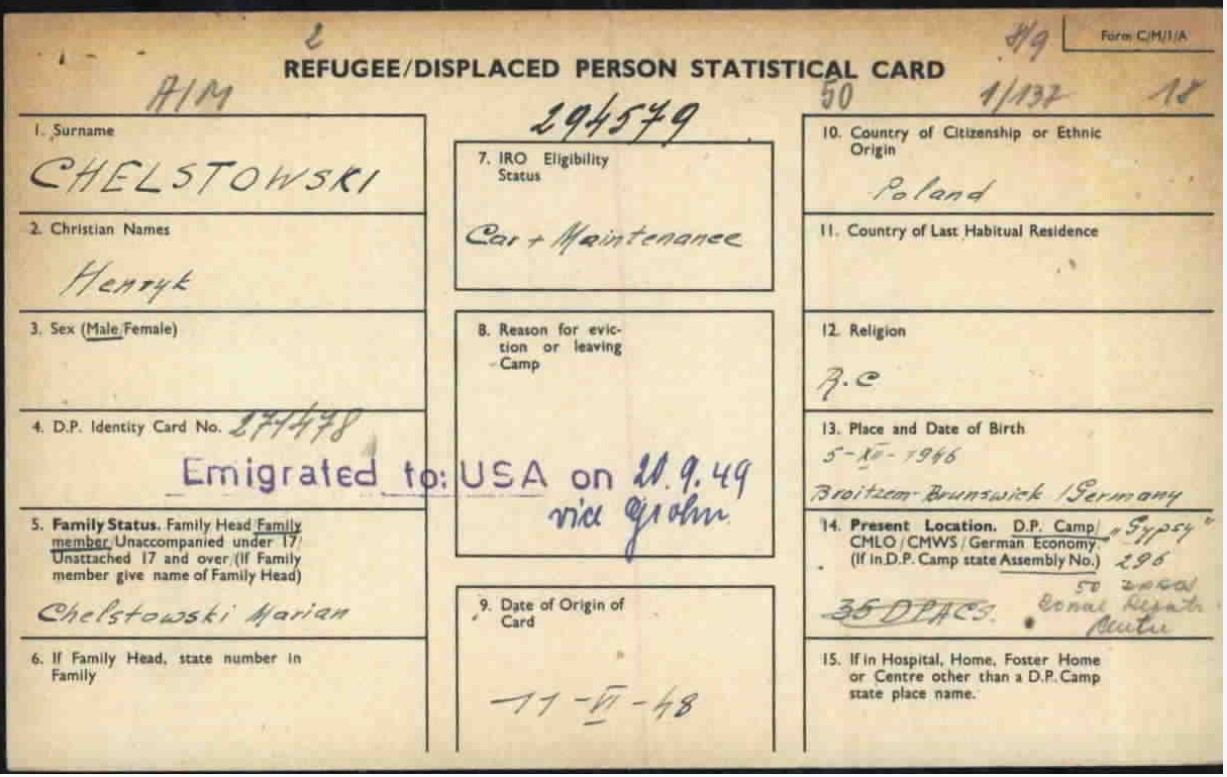 2
Form C/M/1/A
REFUGEE/DISPLACED PERSON STATISTICAL CARD
A/M
50 1/137 18
294579
1. Surname
CHELSTOWSKI
2. Christian Names
Henryk
3. Sex (Male/Female)
4. D.P. Identity Card No. 271478
Emigrated to: USA on 20.9.49
5. Family Status. Family Head/Family
member/Unaccompanied under 17/
Unattached 17 and over/(If Family
member give name of Family Head)
Chelstowski Marian
6. If Family Head, state number in
Family
7. IRO Eligibility
Status
Car + Maintenance
8. Reason for evic-
tion or leaving
Camp
9. Date of Origin of
Card
11-VI-48
10. Country of Citizenship or Ethnic
Origin
Poland
11. Country of Last Habitual Residence
12. Religion
R.C
13. Place and Date of Birth
5-XII-1946
Broitzem-Brunswick/Germany
14. Present Location. D.P. Camp/ "Gypsy"
CMLO/CMWS/German Economy.
(If in D.P. Camp state Assembly No.) 296
50
35 DPACS.
15. If in Hospital, Home, Foster Home
or Centre other than a D.P. Camp
state place name.